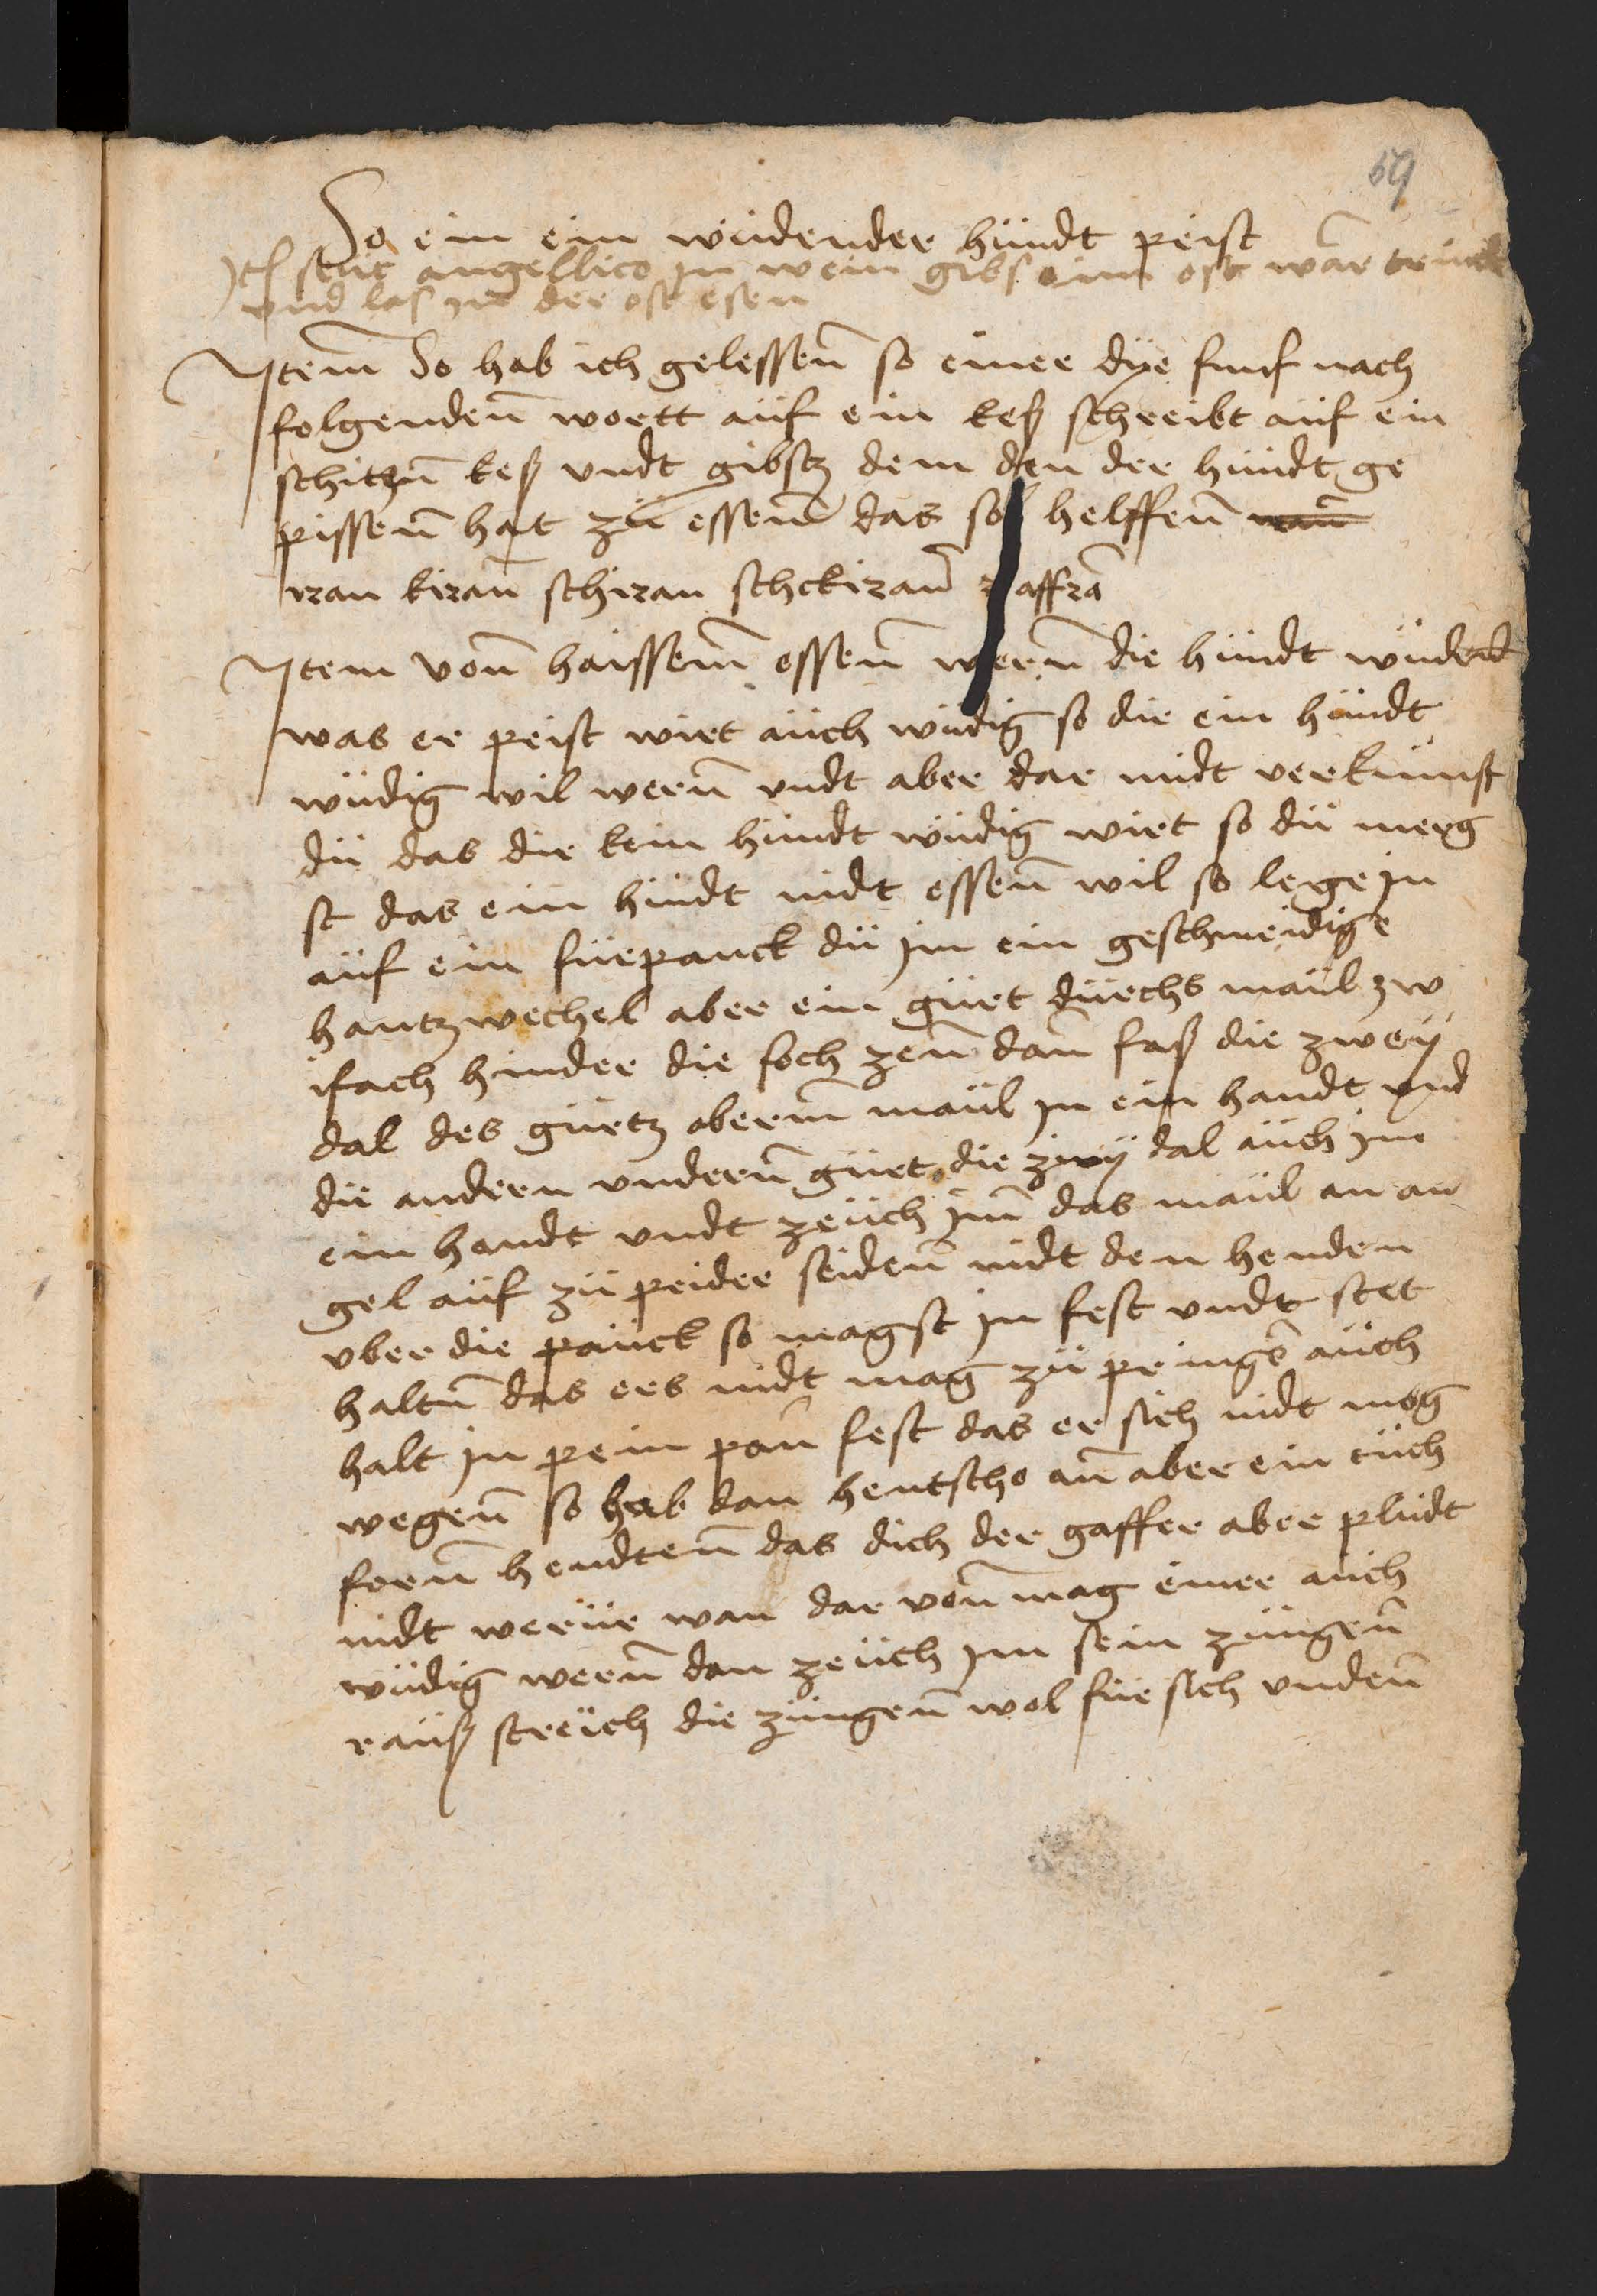 59
So ein ein wüdender hündt peist
Itē stüc angellico in wein gibs eim oft war
vnd las in der oft esen
Jtem So hab ich gelessen̄ so einer dÿe funf nach
folgenden̄ wortt aüf ein keß schreibt aüf ein
schitzn̄ keß vndt gibstz dem den der hündt ge
pissen̄ hat zü essen̄ das sol helffen̄
iran kiran̄ schiran schckiran̄ affrā
Jtem von̄ haissem̄ essen̄ wern̄ die hündt wüdend
was er peist wirt aüch wüdig so die ein hündt
wüdig wil wern̄ vndt aber dar nidt verkümst
dü das die kein hündt wüdig wirt so dü merg
st das ein hündt nidt essen̄ wil so lege in
aüf ein fürpanck dü im ein geschmeidige
hantzwechel aber ein gürt dürchs maül zw
ifach hinder die soch zen̄ dan̄ faß die zweÿ
dal des gürtz oberm̄ maül in ein handt vnd
die andern vndern̄ gürt die zwÿ dal aüch im
ein handt vndt zeüch im̄ das maül an an
gel aüf zü peider seiden̄ nidt den henden
vber die panck so magst in fest vndt stet
haltn̄ das ers nidt mag zü pringē aüch
halt in pein pan̄ fest das er sich nidt mög
wegen̄ so hab dan hentscho an̄ aber ein tüch
forn̄ hendten̄ das dich der gaffer aber plüdt
nidt werür wan dar von̄ mag einer aüch
wüdig wern̄ dan zeüch im sein züngen̄
raüß streich die züngen̄ wol für sich vnden̄